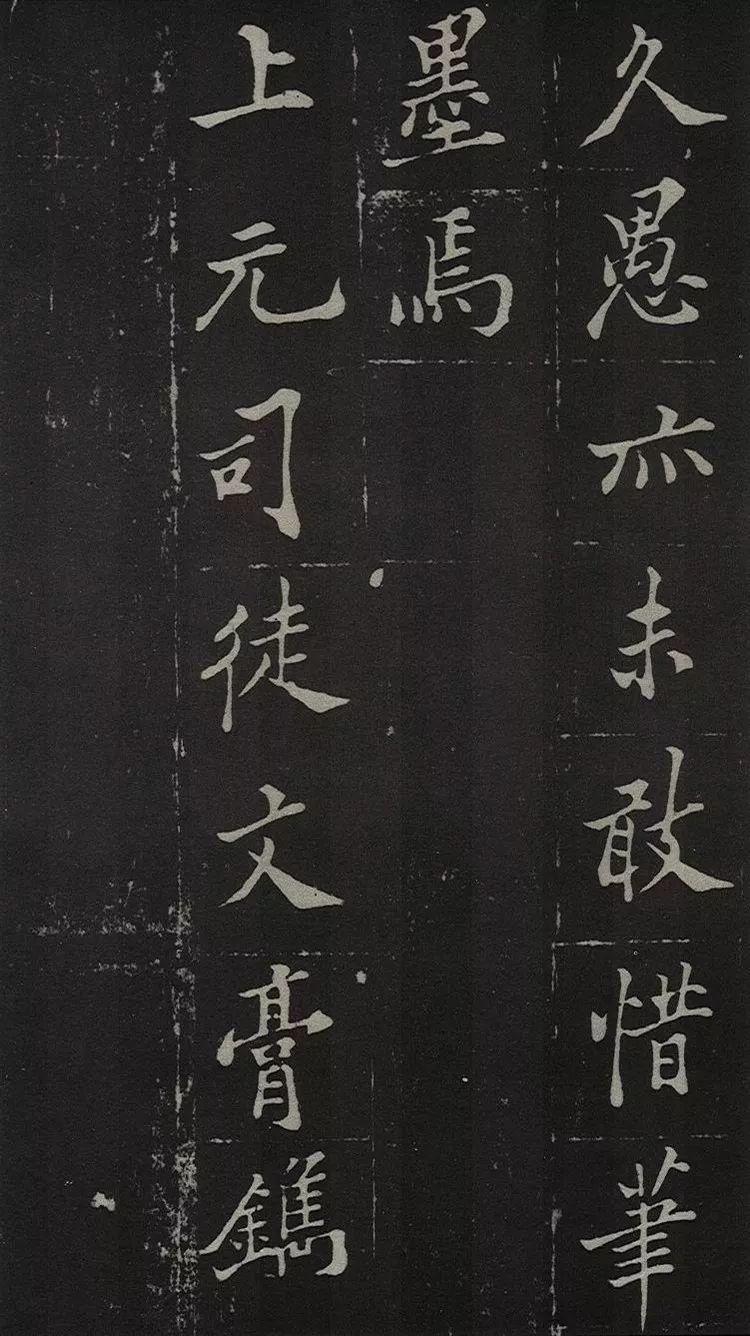 久愚亦未敢惜筆
墨焉
上元司徒文膏鐫